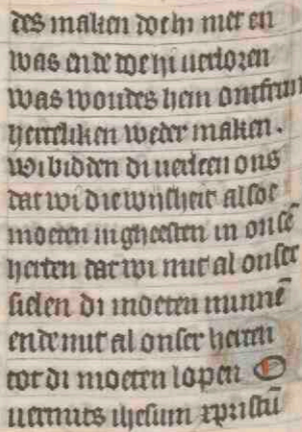 des maken doe hi niet en
was ende doe hi uerloren
was woudes hem ontfrm
herteliken weder maken.
wi bidden di uerleen ons
dat wi die wijsheit alsoe
moeten in gheesten in onsē
herten dat wi mit al onser
sielen di moeten minnē
ende mit al onser herten
tot di moeten lopen O
uermits ihesum xpristū